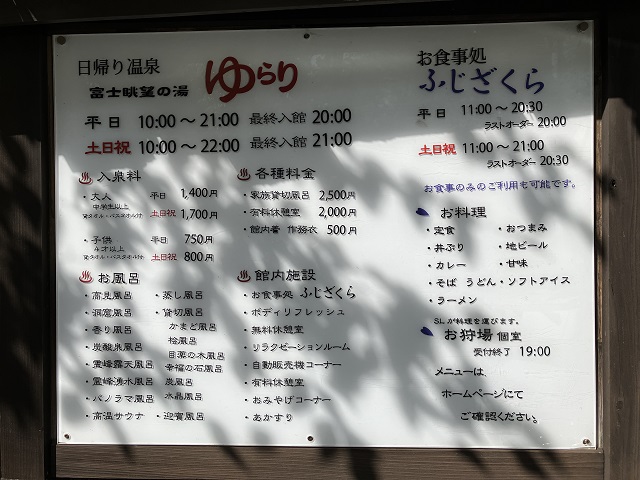 日帰り温泉
富士眺望の湯 ゆらり
平日 10:00～21:00 最終入館 20:00
土日祝 10:00～22:00 最終入館 21:00
入泉料
・大人 平日 1,400円
中学生以上
貸タオル・バスタオル付 土日祝 1,700円
・子供 平日 750円
4才以上
貸タオル・バスタオル付 土日祝 800円
各種料金
・家族貸切風呂 2,500円
・有料休憩室 2,000円
・館内着 作務衣 500円
お風呂
・高見風呂
・洞窟風呂
・香り風呂
・炭酸泉風呂
・霊峰露天風呂
・霊峰湧水風呂
・パノラマ風呂
・高温サウナ
・蒸し風呂
・貸切風呂
かまど風呂
桧風呂
目薬の木風呂
幸福の石風呂
炭風呂
水晶風呂
・迎賓風呂
館内施設
・お食事処 ふじざくら
・ボディリフレッシュ
・無料休憩室
・リラクゼーションルーム
・自動販売機コーナー
・有料休憩室
・おみやげコーナー
・あかすり
お食事処
ふじざくら
平日 11:00～20:30
ラストオーダー 20:00
土日祝 11:00～21:00
ラストオーダー 20:30
お食事のみのご利用も可能です。
お料理
・定食 ・おつまみ
・丼ぶり ・地ビール
・カレー ・甘味
・そば うどん ・ソフトアイス
・ラーメン
SLが料理を運びます。
お狩場 個室
受付終了 19:00
メニューは、
ホームページにて
ご確認ください。